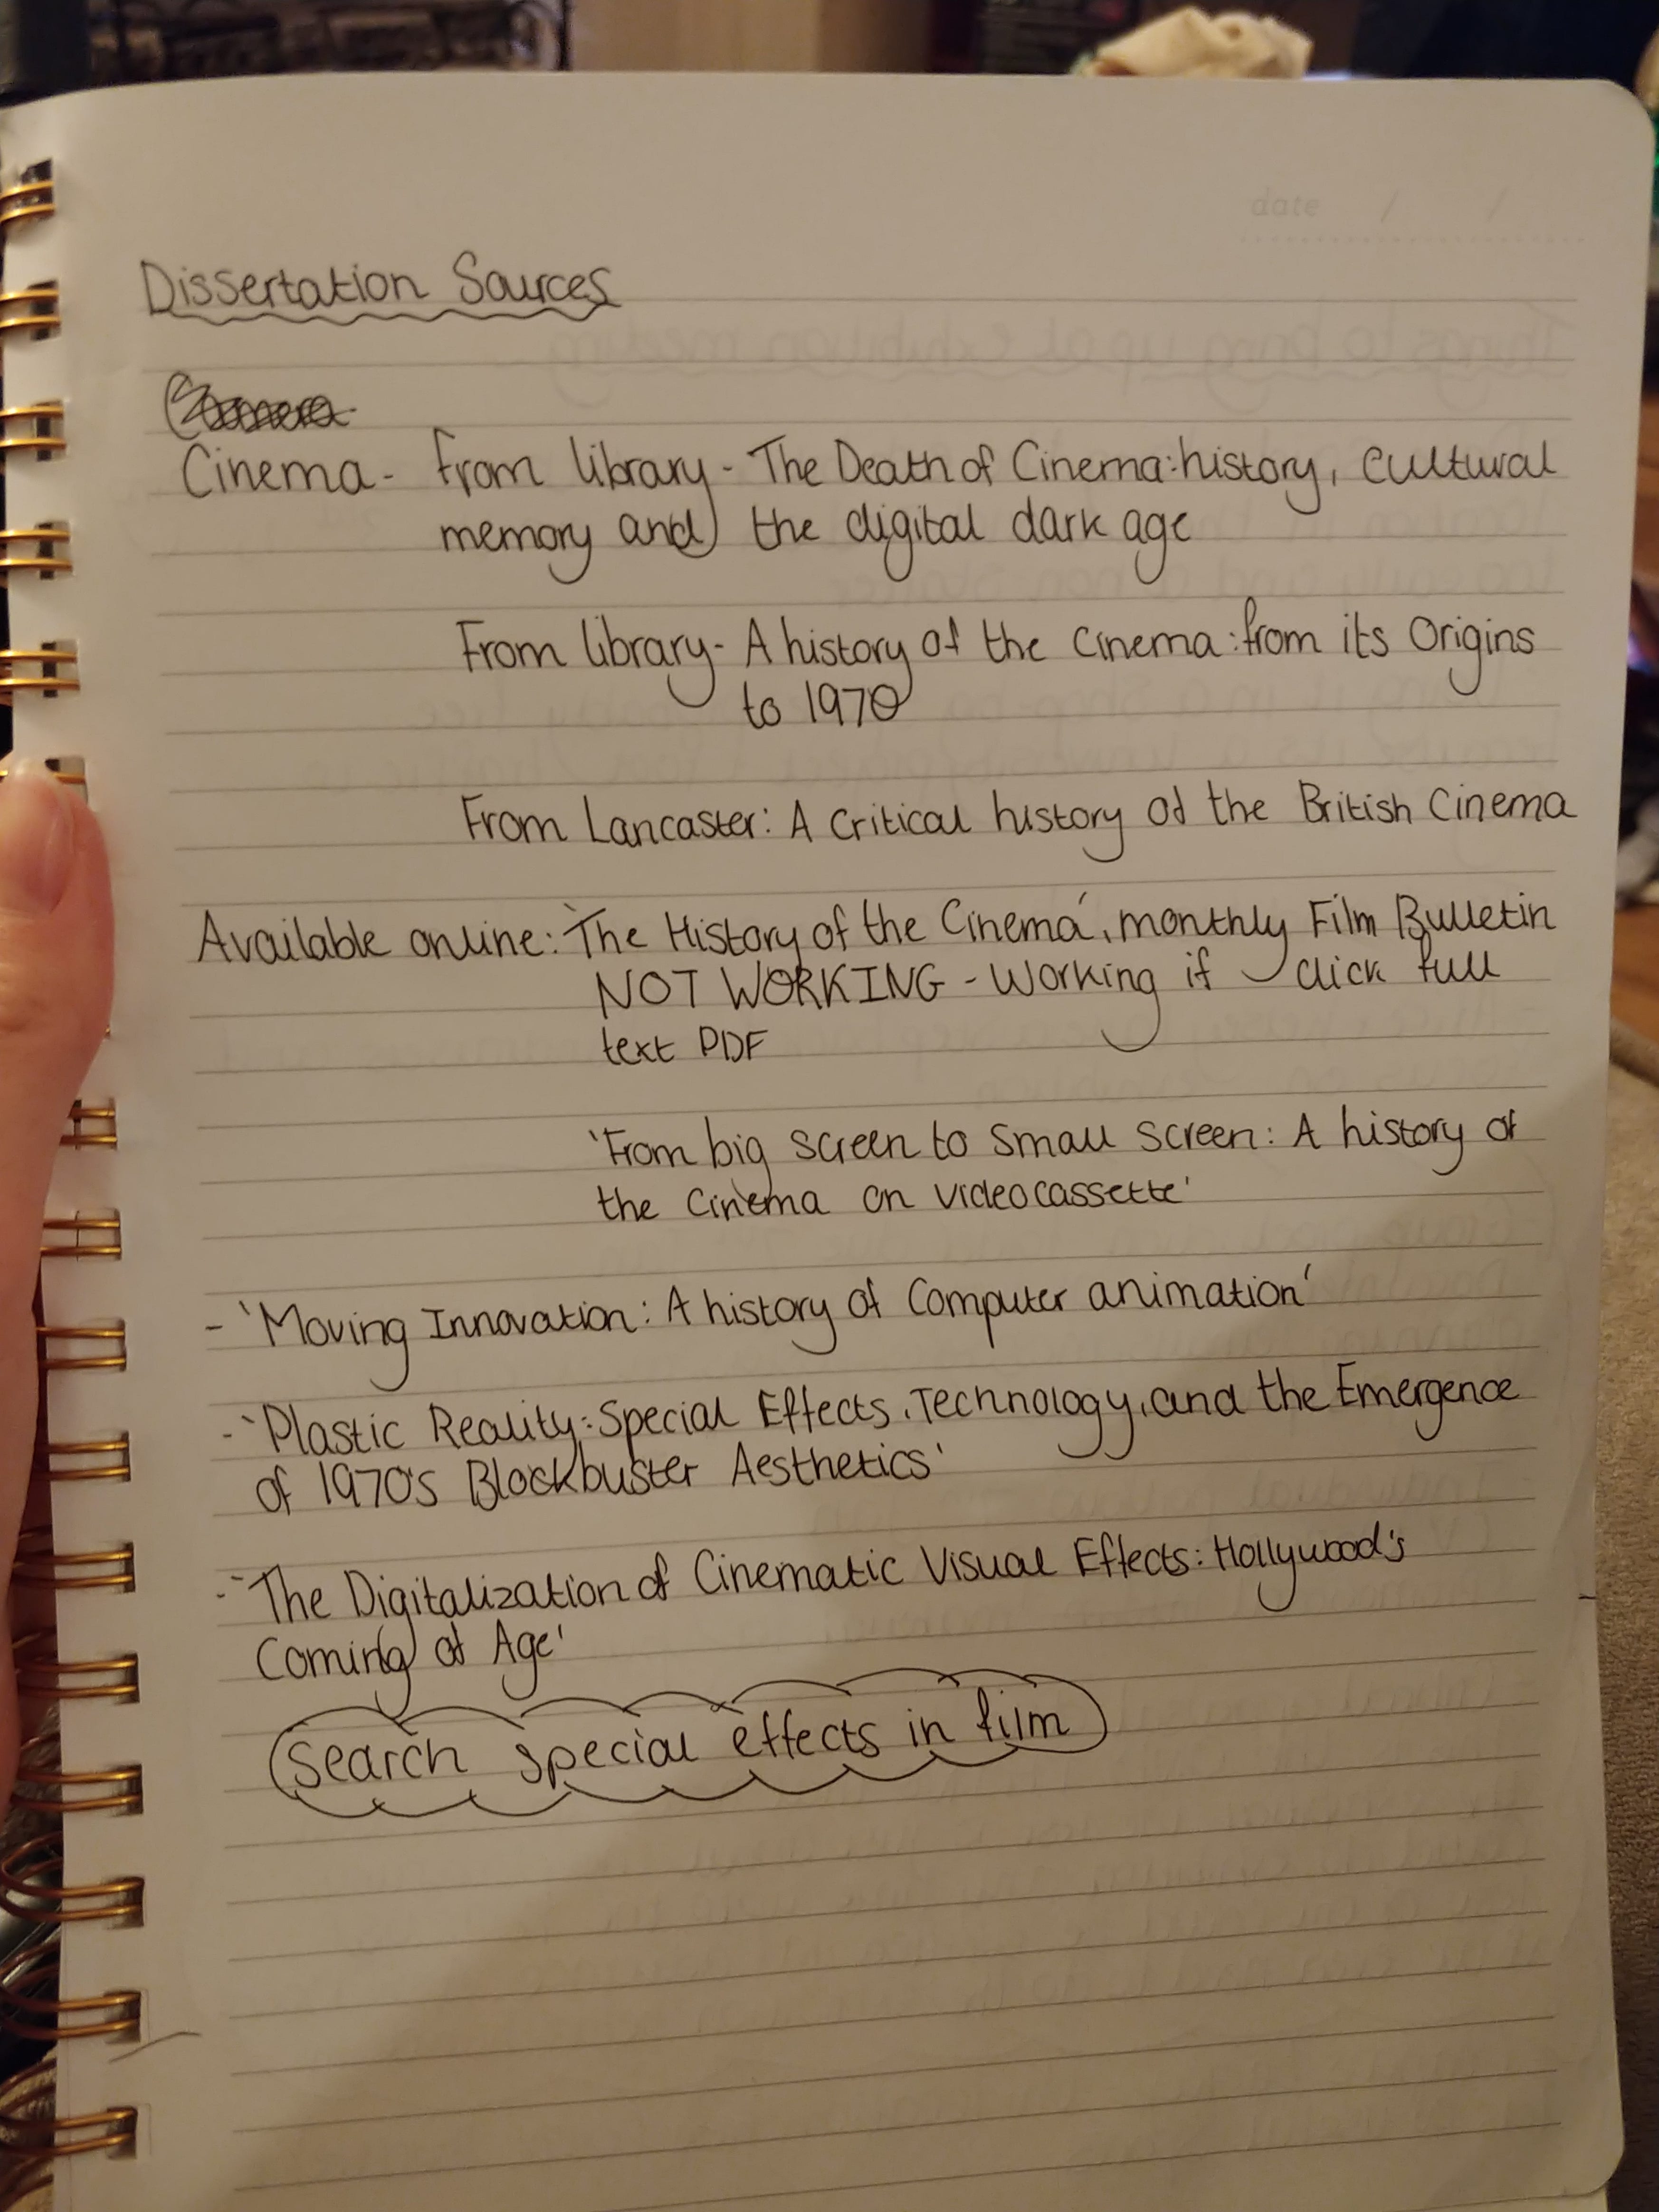 date / /
Dissertation Sources
Cinema - From library - The Death of Cinema: history, cultural
memory and the digital dark age
From library - A history of the cinema: from its Origins
to 1970
From Lancaster: A critical history of the British Cinema
Available online: 'The History of the Cinema', monthly Film Bulletin
NOT WORKING - Working if click full
text PDF
'From big screen to small screen: A history of
the cinema on videocassette'
- 'Moving Innovation: A history of Computer animation'
- 'Plastic Reality: Special Effects, Technology, and the Emergence
of 1970's Blockbuster Aesthetics'
- 'The Digitalization of Cinematic Visual Effects: Hollywood's
Coming of Age'
Search special effects in film